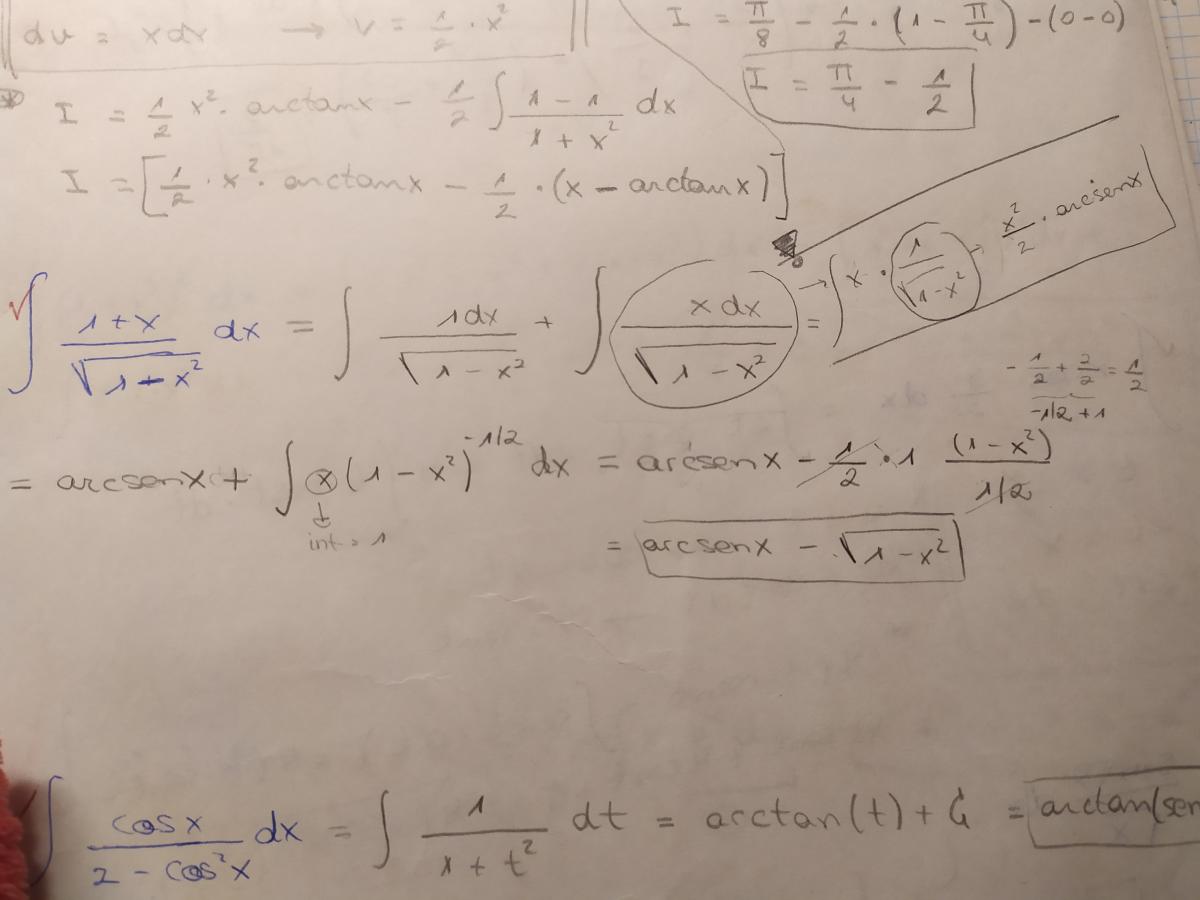 du = xdx → v = 1/2 · x²
I = π/8 - 1/2 · (1 - π/4) - (0-0)
I = π/4 - 1/2
* I = 1/2 x² · arctanx - 1/2 ∫ 1-1/1+x² dx
I = [1/2 · x² · arctanx - 1/2 · (x - arctanx)]
∫ 1+x/√1-x² dx = ∫ 1dx/√1-x² + ∫ x dx/√1-x² =
→ ∫ x · 1/√1-x² → x²/2 · arcsenx
- 1/2 + 2/2 = 1/2
-1/2 + 1
= arcsenx + ∫ x (1-x²)^-1/2 dx = arcsenx - 1/2 · 1 (1-x²)/1/2
int = 1
= arcsenx - √1-x²
∫ cosx/2-cos²x dx = ∫ 1/1+t² dt = arctan(t) + C = arctan(sen